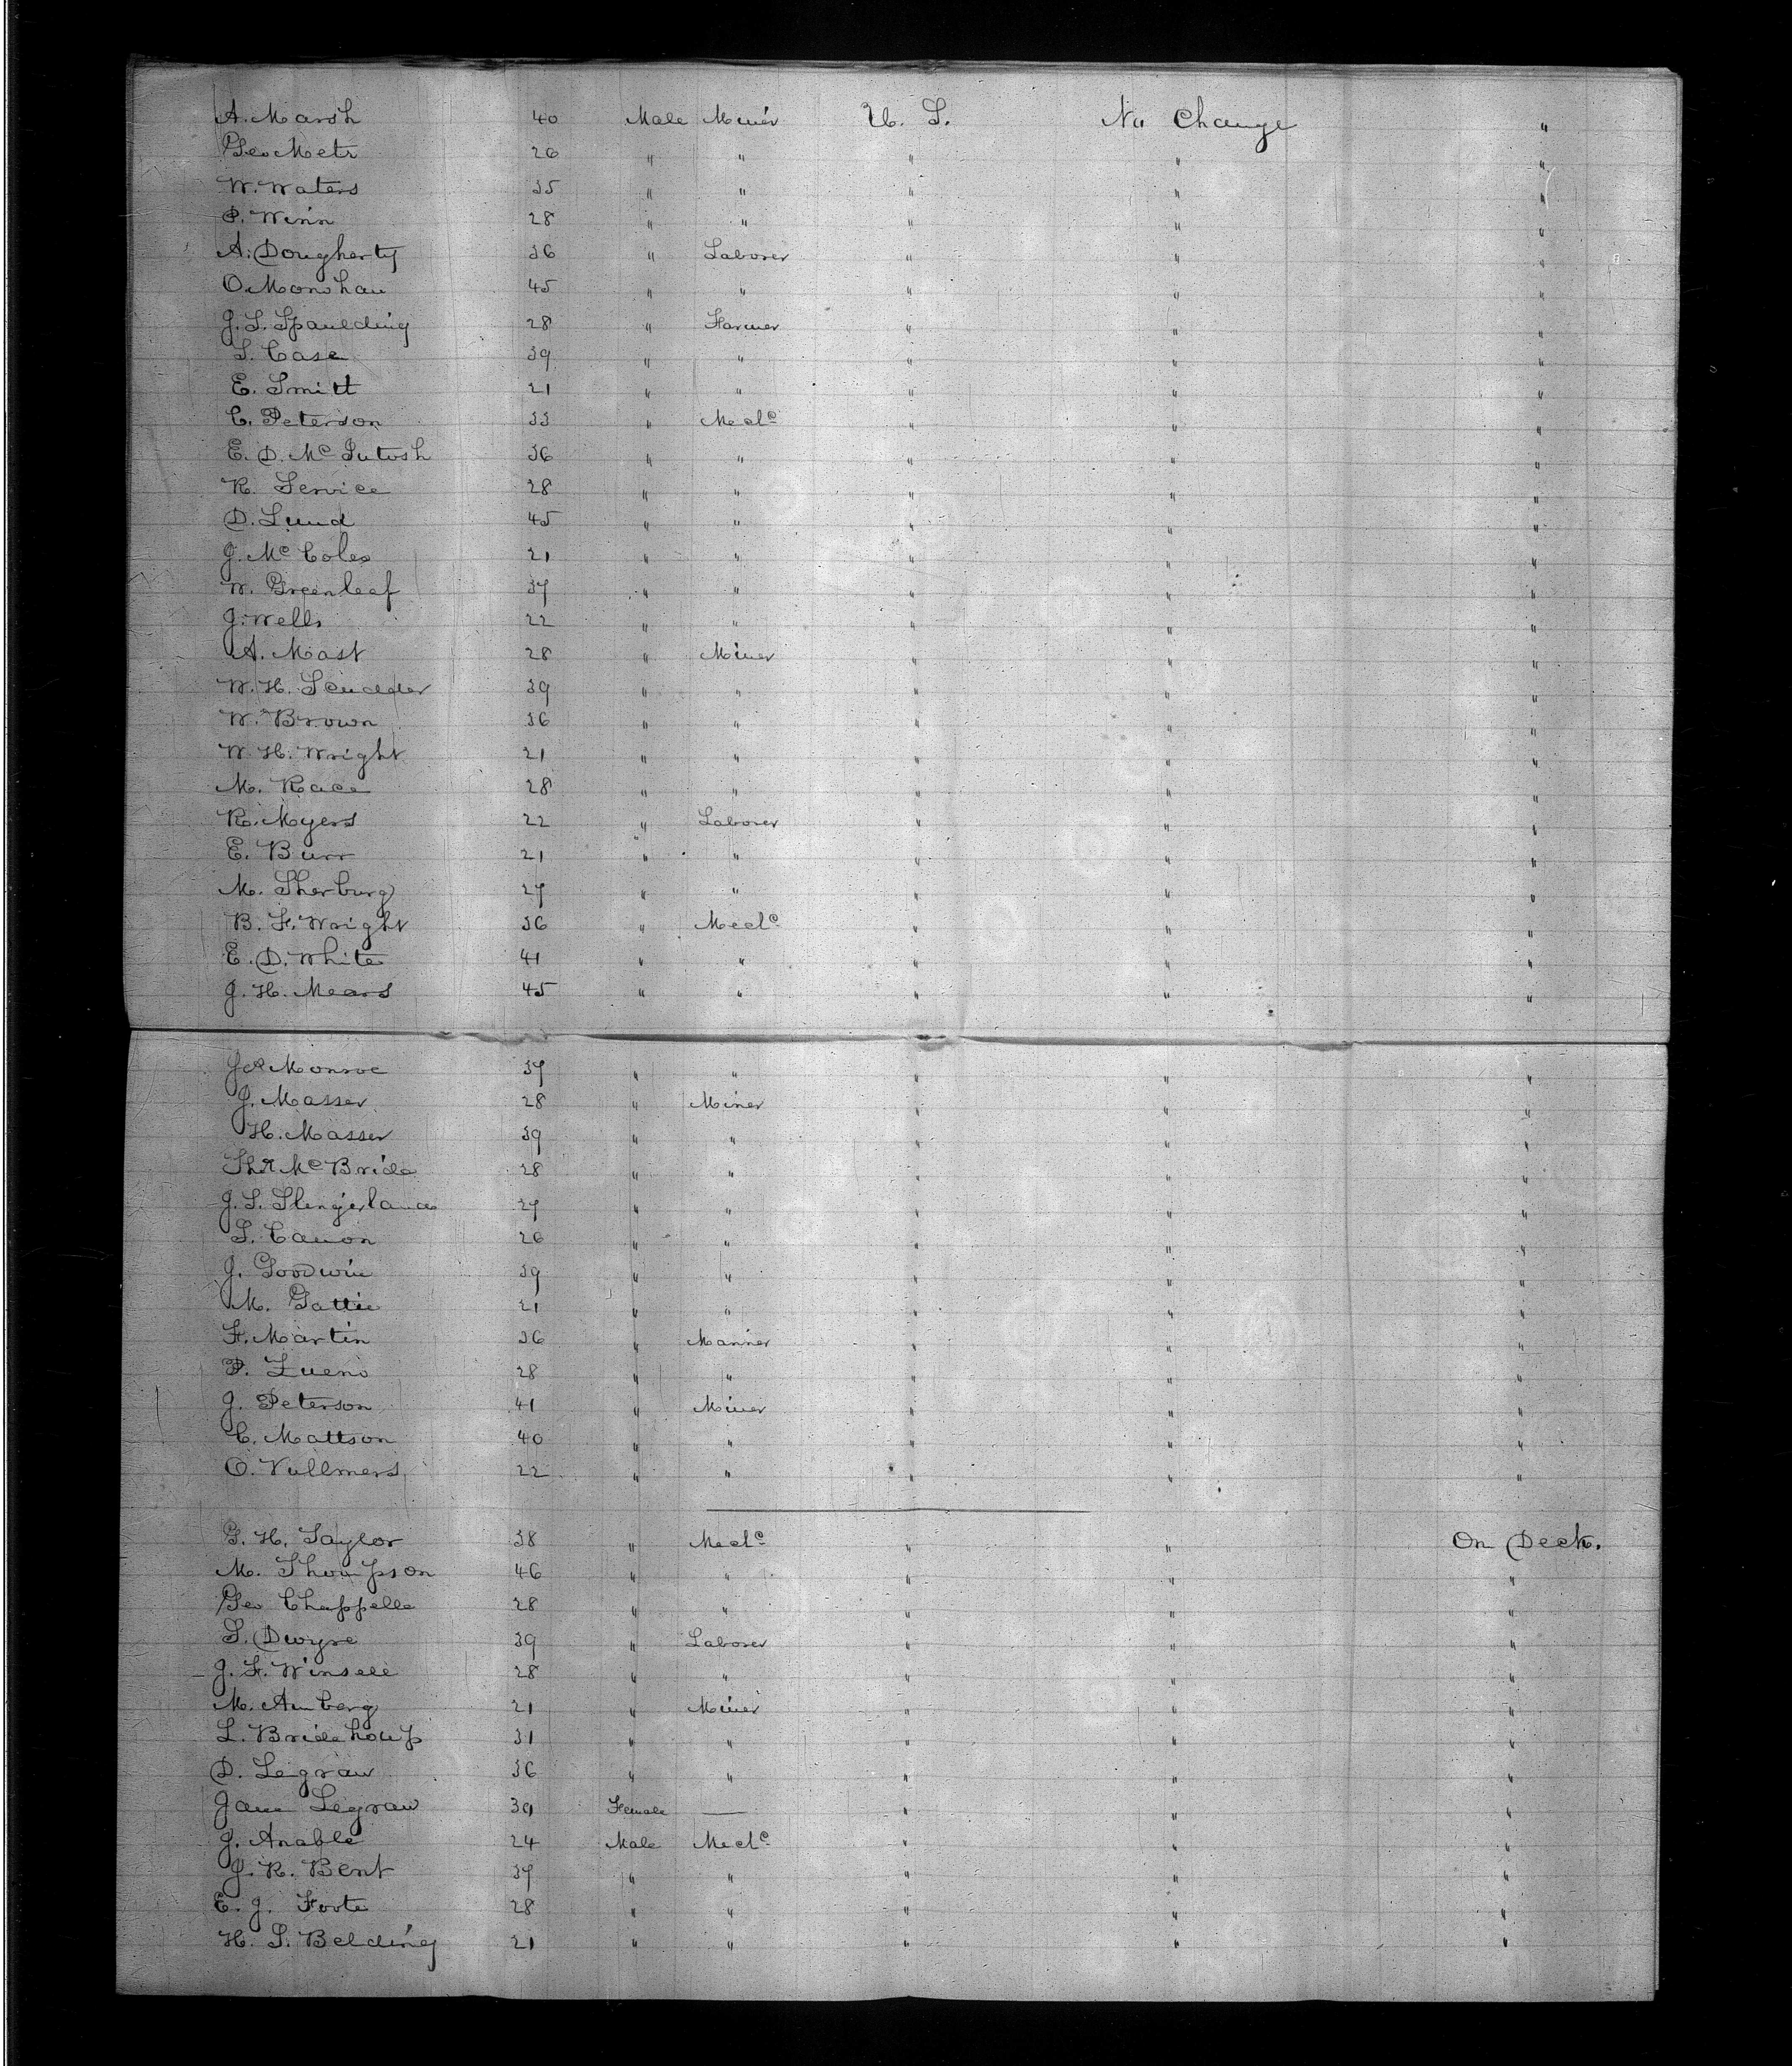 A. Marsh 40 Male Miner U. S. No Change "
Geo Metz 26 " " " " "
W. Waters 35 " " " " "
P. Winn 28 " " " " "
A. Dougherty 36 " Laborer " " "
O. Monohan 45 " " " " "
J. S. Spaulding 28 " Farmer " " "
S. Case 39 " " " " "
E. Smitt 21 " " " " "
C. Peterson 33 " Mecc " " "
E. D. Mc Intosh 36 " " " " "
R. Service 28 " " " " "
D. Lund 45 " " " " "
J. Mc Coles 21 " " " " "
W. Greenleaf 37 " " " " "
J. Wells 22 " " " " "
A. Mast 28 " Miner " " "
W. H. Scudder 39 " " " " "
W. Brown 36 " " " " "
W. H. Wright 21 " " " " "
M. Race 28 " " " " "
R. Myers 22 " Laborer " " "
E. Burr 21 " " " " "
M. Sherburg 27 " " " " "
B. F. Wright 36 " Mecc " " "
E. D. White 41 " " " " "
J. H. Mears 45 " " " " "
Monroe 37 " " " " "
J. Masser 28 " Miner " " "
H. Masser 39 " " " " "
Mc Bride 28 " " " " "
J. S. Slengerland 27 " " " " "
S. Canon 26 " " " " "
J. Goodwin 39 " " " " "
M. Gattie 21 " " " " "
F. Martin 36 " Mariner " " "
P. Zueno 28 " " " " "
J. Peterson 41 " Miner " " "
C. Mattson 40 " " " " "
O. Vullmers 22 " " " " "
G. H. Taylor 38 " Mecc " " On Deck.
M. Thompson 46 " " " " "
Geo Chappelle 28 " " " " "
S. Dwyre 39 " Laborer " " "
J. F. Winsell 28 " " " " "
M. Amberg 21 " Miner " " "
L. Bridehoup 31 " " " " "
D. Legraw 36 " " " " "
Jane Legraw 39 Female — " " "
J. Anable 24 Male Mecc " " "
J. R. Bent 37 " " " " "
E. J. Foote 28 " " " " "
H. S. Belding 21 " " " " "